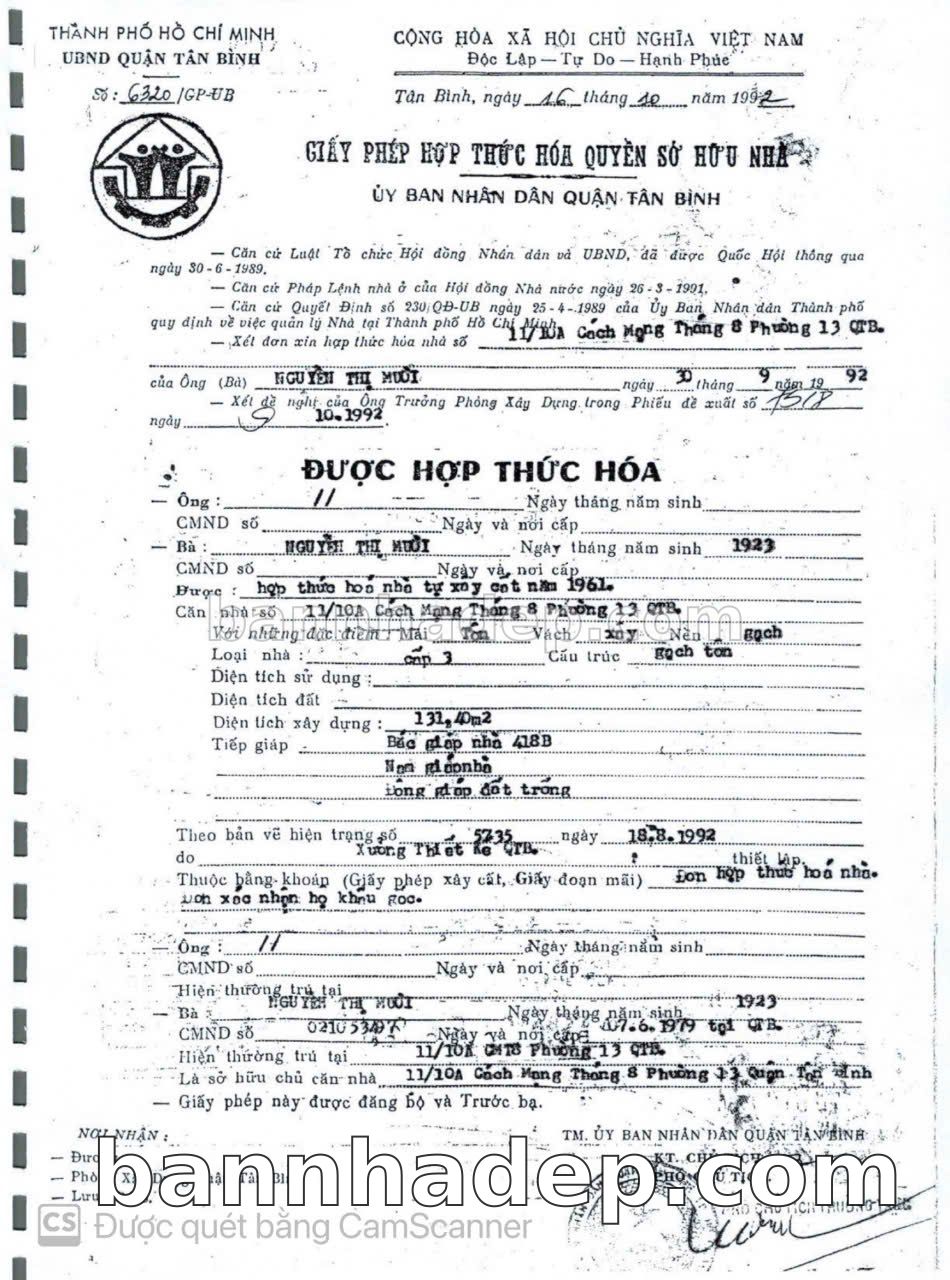 THÀNH PHỐ HỒ CHÍ MINH
UBND QUẬN TÂN BÌNH
Số: 6320/GP-UB
CỘNG HÒA XÃ HỘI CHỦ NGHĨA VIỆT NAM
Độc Lập — Tự Do — Hạnh Phúc
Tân Bình, ngày 16 tháng 10 năm 1992
GIẤY PHÉP HỢP THỨC HÓA QUYỀN SỞ HỮU NHÀ
ỦY BAN NHÂN DÂN QUẬN TÂN BÌNH
— Căn cứ Luật Tổ chức Hội đồng Nhân dân và UBND, đã được Quốc Hội thông qua
ngày 30-6-1989.
— Căn cứ Pháp Lệnh nhà ở của Hội đồng Nhà nước ngày 26-3-1991.
— Căn cứ Quyết Định số 230/QĐ-UB ngày 25-4-1989 của Ủy Ban Nhân dân Thành phố
quy định về việc quản lý Nhà tại Thành phố Hồ Chí Minh
— Xét đơn xin hợp thức hóa nhà số 11/10A Cách Mạng Tháng 8 Phường 13 QTB.
của Ông (Bà) NGUYỄN THỊ MUÔI ngày 30 tháng 9 năm 19 92
— Xét đề nghị của Ông Trưởng Phòng Xây Dựng trong Phiếu đề xuất số
ngày 10.1992.
ĐƯỢC HỢP THỨC HÓA
— Ông : // Ngày tháng năm sinh
CMND số Ngày và nơi cấp
— Bà : NGUYỄN THỊ MUÔI Ngày tháng năm sinh 1923
CMND số Ngày và nơi cấp
Được : hợp thức hoá nhà tự xây cất năm 1961.
Căn nhà số 11/10A Cách Mạng Tháng 8 Phường 13 QTB.
Với những đặc điểm : Mái Tôn Vách xây Nền gạch
Loại nhà : cấp 3 Cấu trúc gạch tôn
Diện tích sử dụng :
Diện tích đất
Diện tích xây dựng : 131,40m2
Tiếp giáp Bắc giáp nhà 418B
Nam giáp nhà
Đông giáp đất trống
Theo bản vẽ hiện trạng số 5735 ngày 18.8.1992
do Xưởng Thiết Kế QTB. thiết lập.
Thuộc bằng khoán (Giấy phép xây cất, Giấy đoạn mãi) Đơn hợp thức hoá nhà.
Đơn xác nhận hộ khẩu gốc.
— Ông : // Ngày tháng năm sinh
CMND số Ngày và nơi cấp
Hiện thường trú tại
— Bà : NGUYỄN THỊ MUÔI Ngày tháng năm sinh 1923
CMND số Ngày và nơi cấp 07.6.1979 tại QTB.
Hiện thường trú tại 11/10A CMT8 Phường 13 QTB.
Là sở hữu chủ căn nhà 11/10A Cách Mạng Tháng 8 Phường 13 Quận Tân Bình
— Giấy phép này được đăng bộ và Trước bạ.
NƠI NHẬN :
TM. ỦY BAN NHÂN DÂN QUẬN TÂN BÌNH
bannhadep.com
bannhadep.com
CS Được quét bằng CamScanner